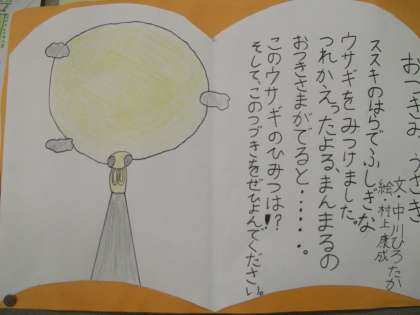 おつきみ うさぎ
文・中川ひろたか
絵・村上康成
ススキのはらで、ふしぎな
ウサギをみつけました。
つれかえったよる、まんまるの
おつきさまがでると・・・・・。
このウサギのひみつは?!
そして、このつづきをぜひよんでください。